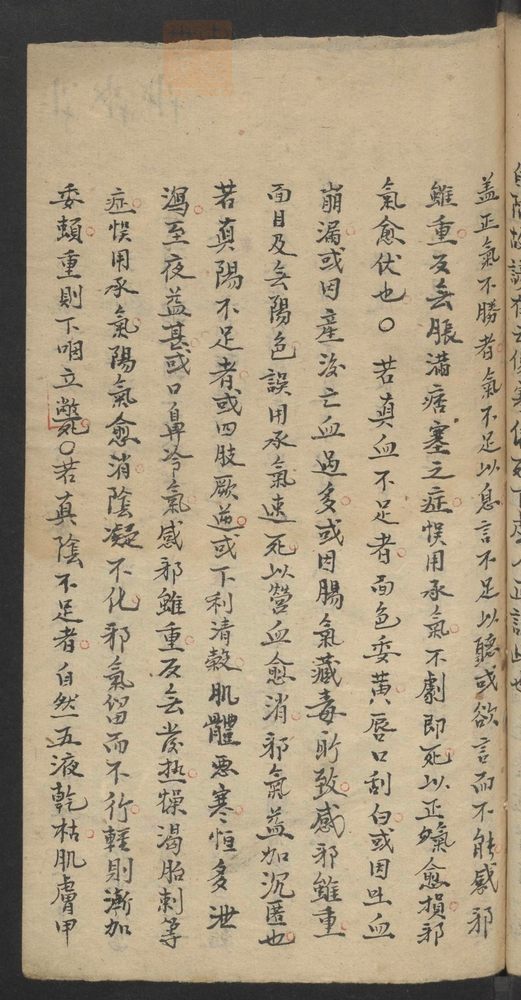 蓋正氣不勝者氣不足以息言不足以聽或欲言而不能感邪
雖重反無脹滿痞塞之症悮用承氣不劇即死以正氣愈損邪
氣愈伏也○若真血不足者面色委黃唇口刮白或因吐血
崩漏或因產後亡血過多或因腸氣藏毒所致感邪雖重
面目反無陽色誤用承氣速死以營血愈消邪氣益加沉匿也
若真陽不足者或四肢厥逆或下利清穀肌體惡寒恒多泄
瀉至夜益甚或口鼻冷氣感邪雖重反無發热燥渴胎刺等
症悮用承氣陽氣愈消陰凝不化邪氣留而不行輕則漸加
委頓重則下咽立斃○若真陰不足者自然五液乾枯肌膚甲